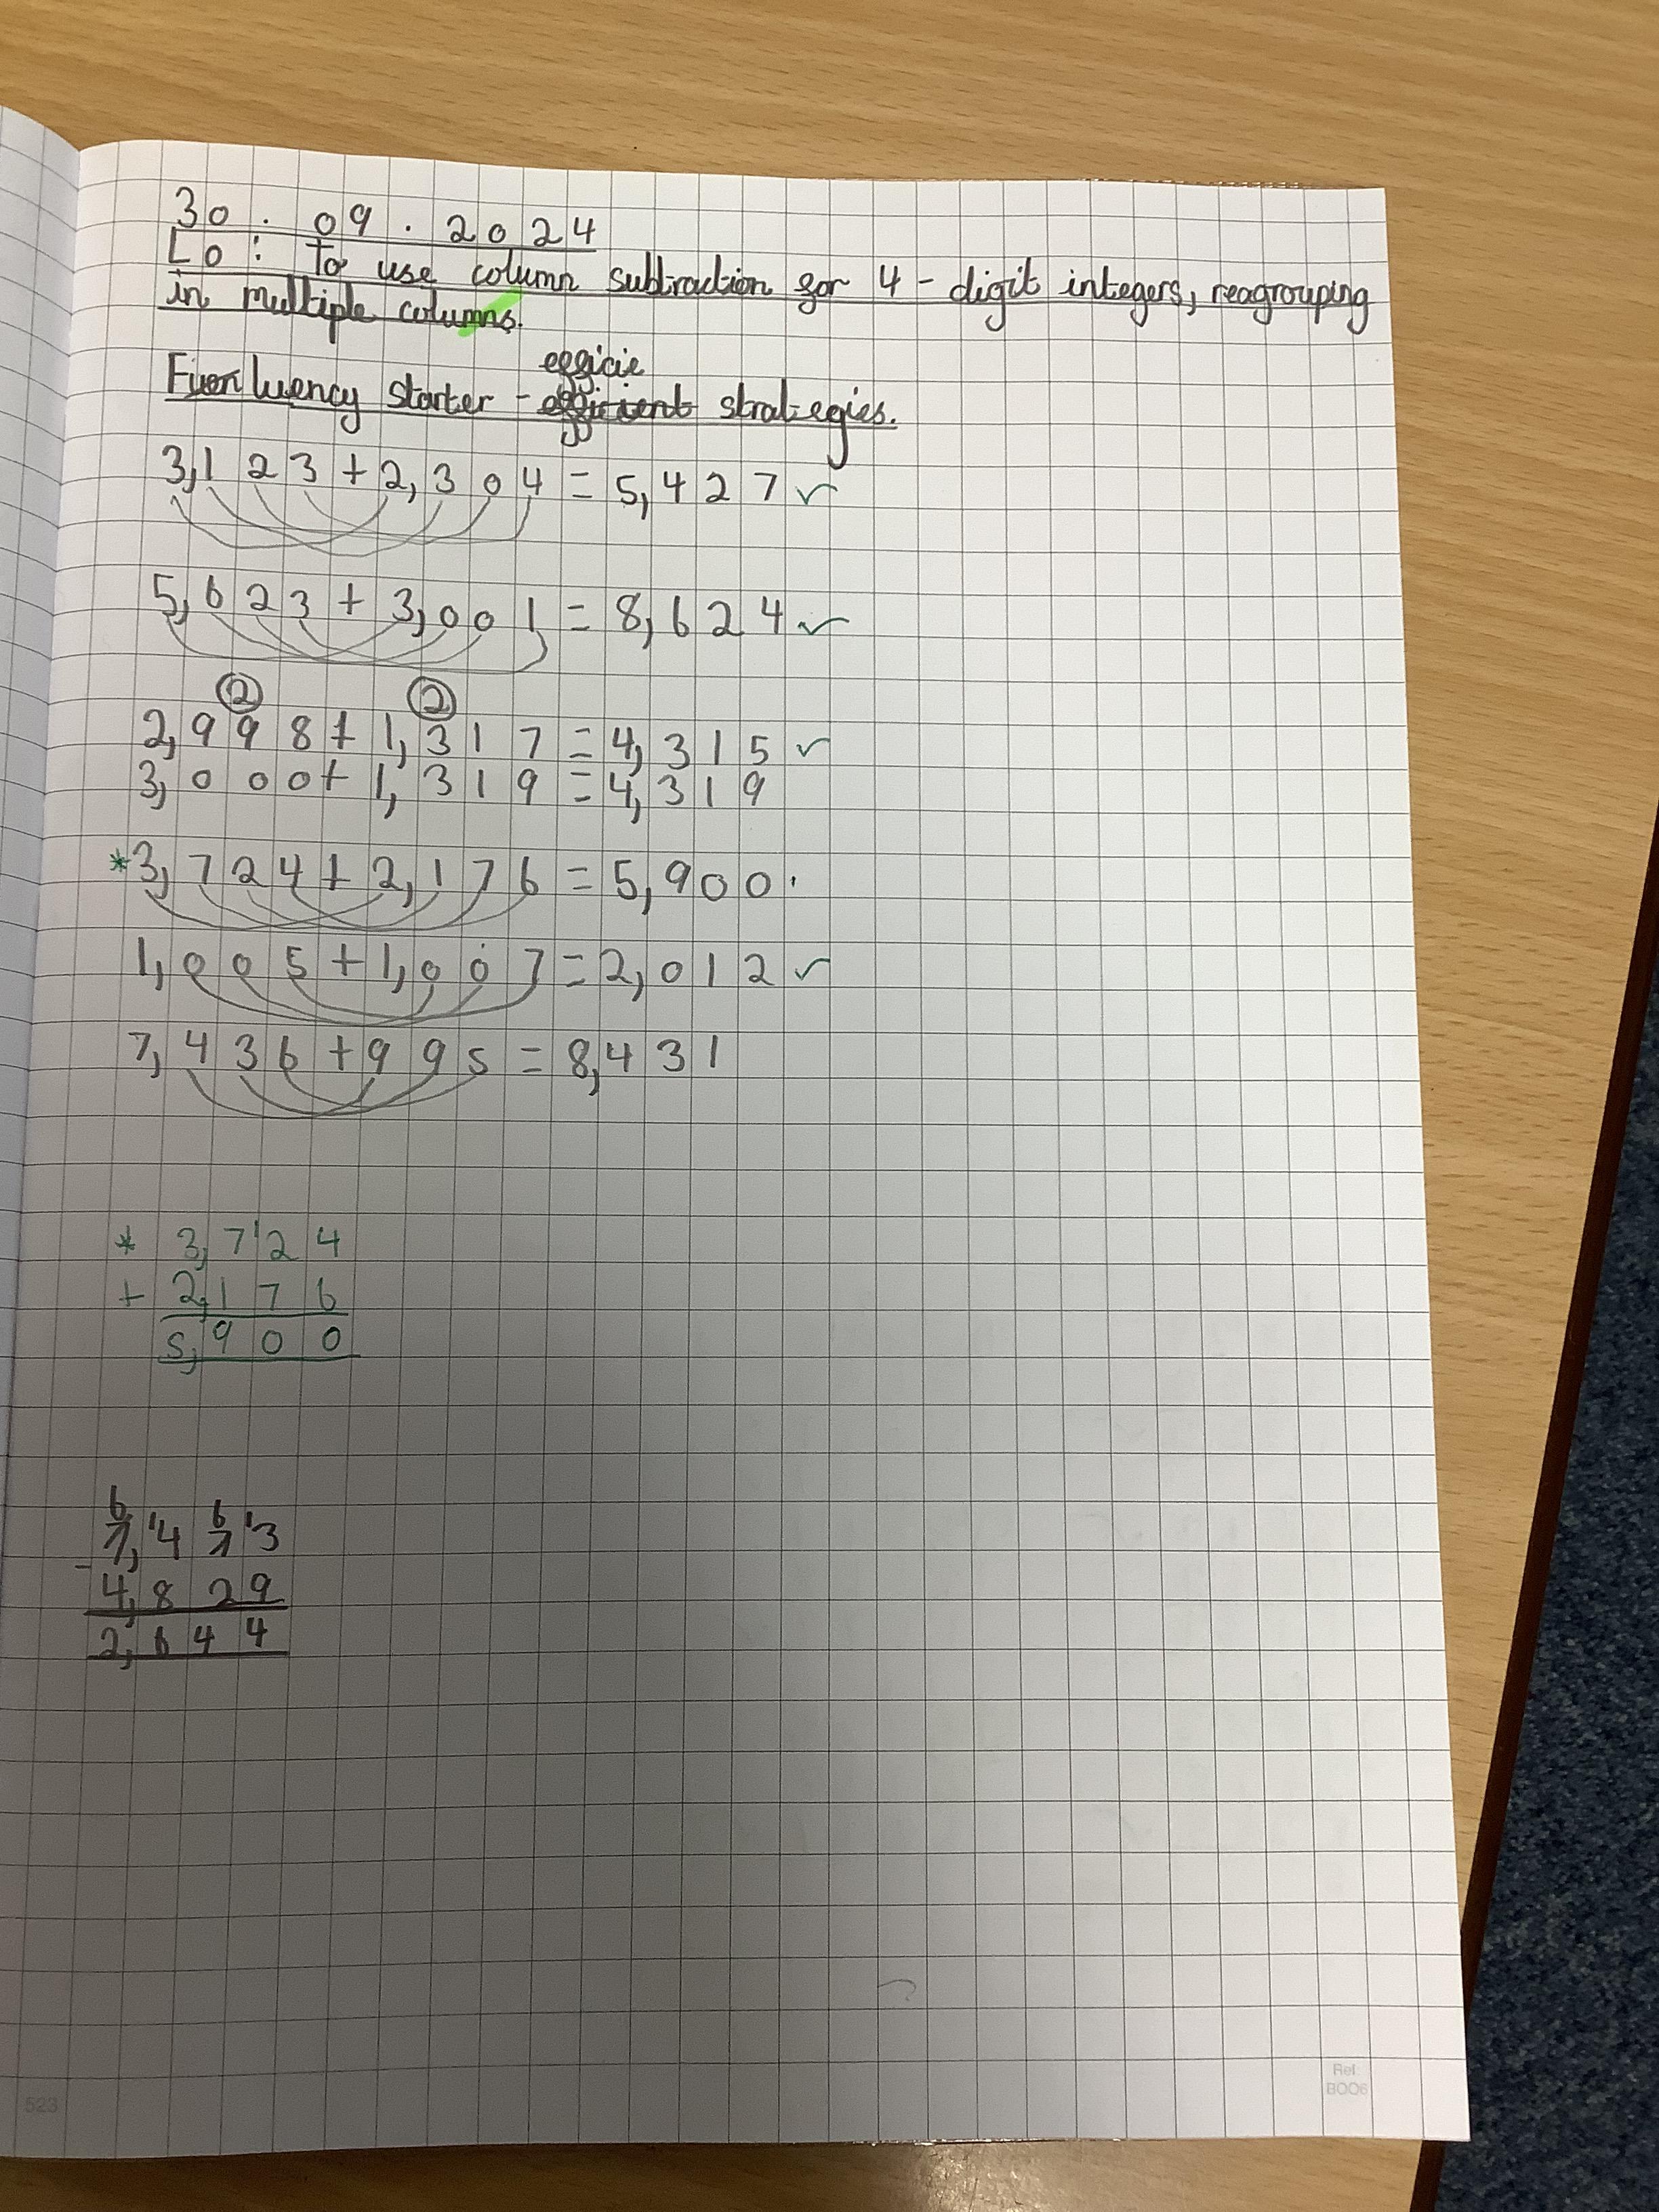 30.09.2024
Lo: To use column subtraction for 4-digit integers, reagrouping
in multiple columns.
efficie
Fluency starter - efficient strategies.
3,123+2,304=5,427 ✓
5,623+3,001=8,624 ✓
② ②
2,998+1,317=4,315 ✓
3,000+1,319=4,319
*3,724+2,176=5,900.
1,005+1,007=2,012 ✓
7,436+995=8,431
* 3,7'24
+ 2,176
5,900
6 6
7,'47'3
- 4,829
2,644
523
Ref:
B006